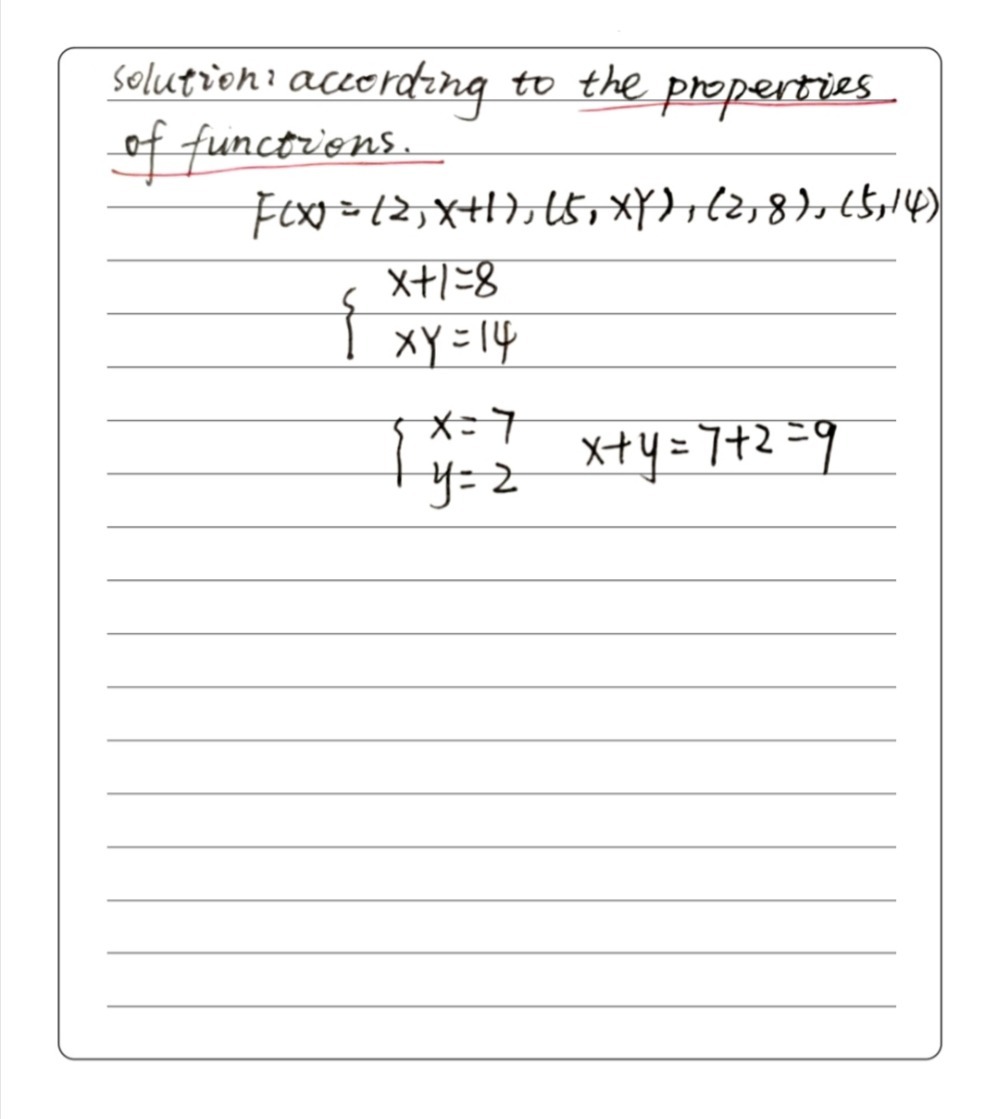 solution: according to the properties
of functions.
F(x) = (2, x+1), (5, xY), (2, 8), (5, 14)
{ x+1=8
xY=14
{ x=7
y=2
x+y=7+2=9